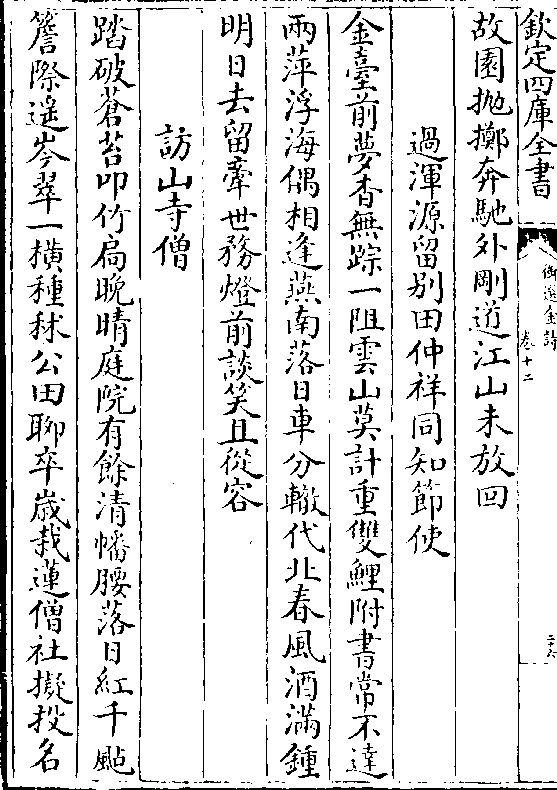 欽定四庫全書
御選金詩
卷十二
二十六
故園抛擲奔馳外剛道江山未放回
過渾源留别田仲祥同知節使
金臺前夢杳無踪一阻雲山莫計重雙鯉附書常不達
兩萍浮海偶相逢燕南落日車分轍代北春風酒滿鍾
明日去留牽世務燈前談笑且從容
訪山寺僧
踏破蒼苔叩竹扃晚晴庭院有餘清幡腰落日紅千點
簷際遙岑翠一橫種秫公田聊卒歲栽蓮僧社擬投名